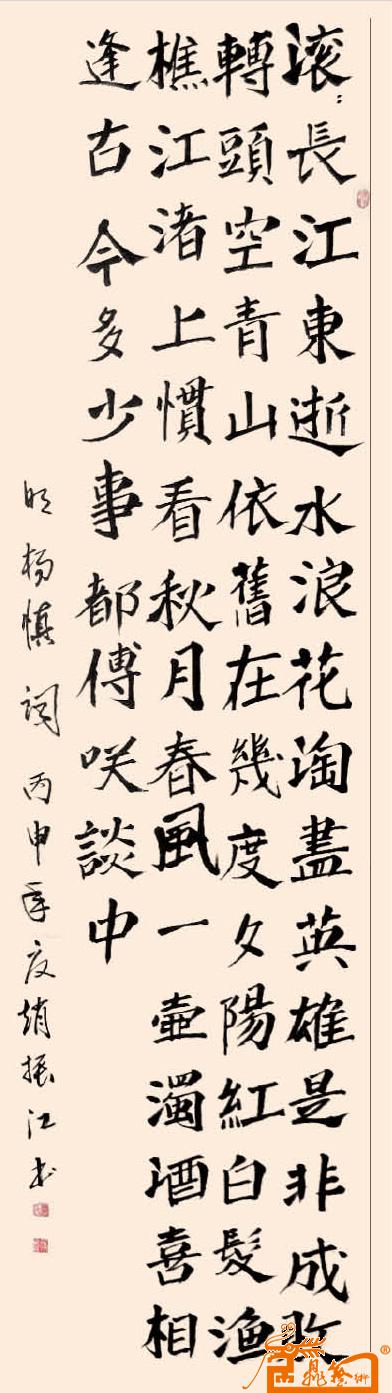 滚：長江東逝水浪花淘盡英雄是非成敗
轉頭空青山依舊在幾度夕陽紅白髮漁
樵江渚上慣看秋月春風一壺濁酒喜相
逢古今多少事都傅咲談中
明杨慎詞丙申年夏趙振江书